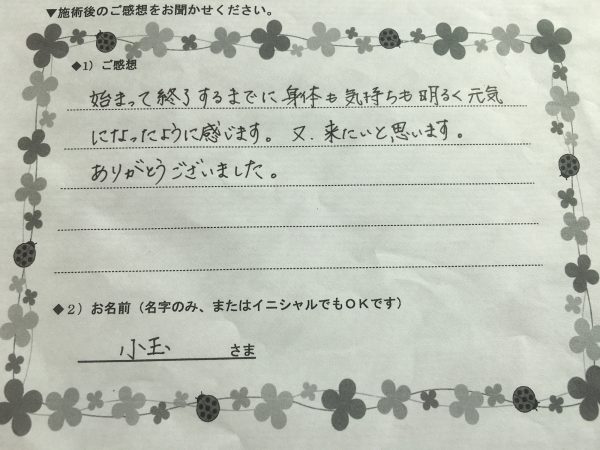 ▼施術後のご感想をお聞かせください。
◆1）ご感想
始まって終了するまでに身体も気持ちも明るく元気
になったように感じます。又、来たいと思います。
ありがとうございました。
◆2）お名前（名字のみ、またはイニシャルでもOKです）
小玉 さま